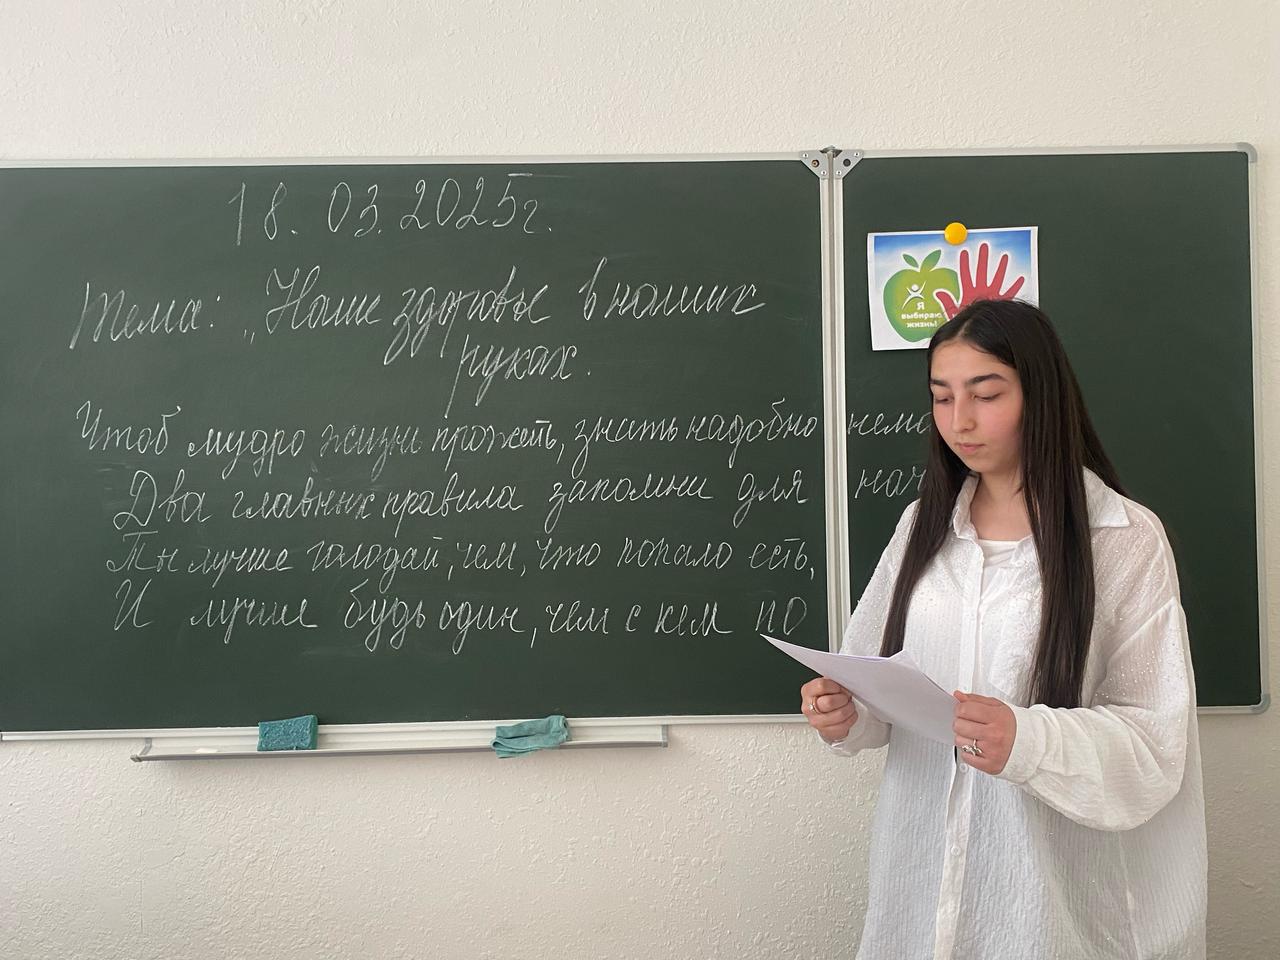 18.03.2025г.
Тема: „Наше здоровье в наших
руках.
Чтоб мудро жизнь прожить, знать надобно нема
Два главных правила запомни для нач
Ты лучше голодай, чем, что попало есть,
И лучше будь один, чем с кем по
Я
выбираю
жизнь!